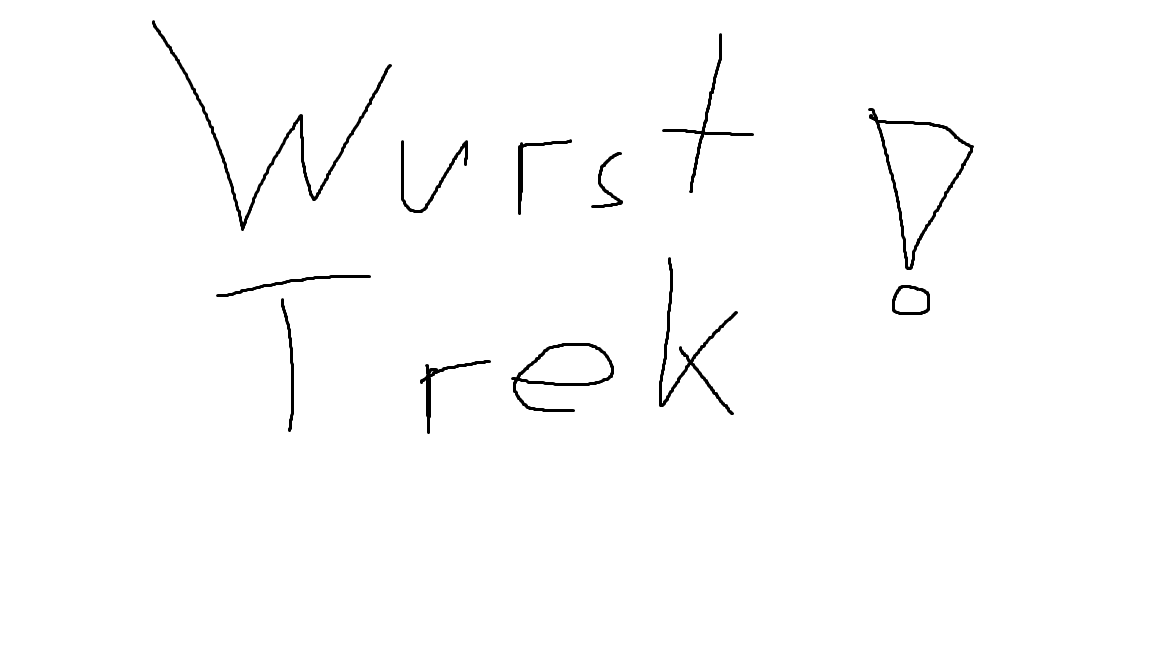 Wurst !
Trek